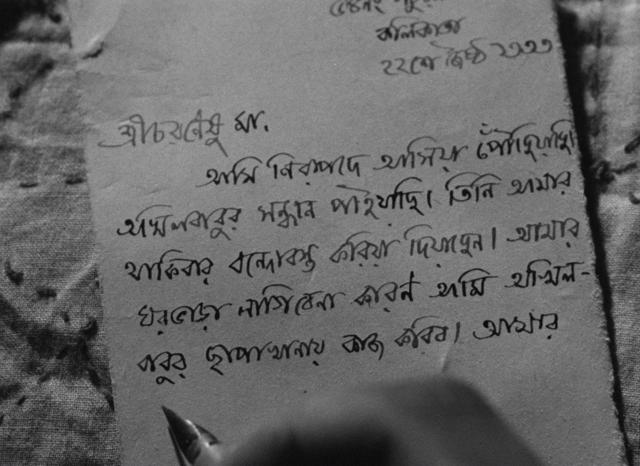 কলিকাতা
২২শে জ্যৈষ্ঠ ১৩৩৩
শ্রীচরণেষু মা,
আমি নিরাপদে আসিয়া পৌঁছিয়াছি।
অখিলবাবুর সন্ধান পাইয়াছি। তিনি আমার
থাকিবার বন্দোবস্ত করিয়া দিয়াছেন। আমার
ঘরভাড়া লাগিবেনা কারণ আমি অখিল-
বাবুর ছাপাখানায় কাজ করিব। আমার